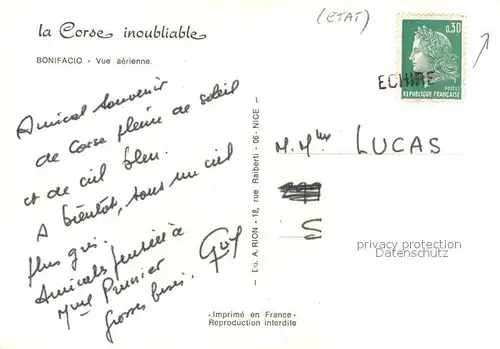 la Corse inoubliable
BONIFACIO - Vue aérienne.
Amical souvenir
de Corse pleine de soleil
et de ciel bleu.
A bientôt, sous un ciel
plus gris.
Amicales pensées à
Mme Prunier
Grosses bises. Guy
- Ed. A. RION - 18, rue Ralberti - 06 - NICE -
- Imprimé en France -
Reproduction interdite
(ETAT)
0,30
POSTES
REPUBLIQUE FRANÇAISE
ECHIRE
M. Mme LUCAS
S
privacy protection
Datenschutz